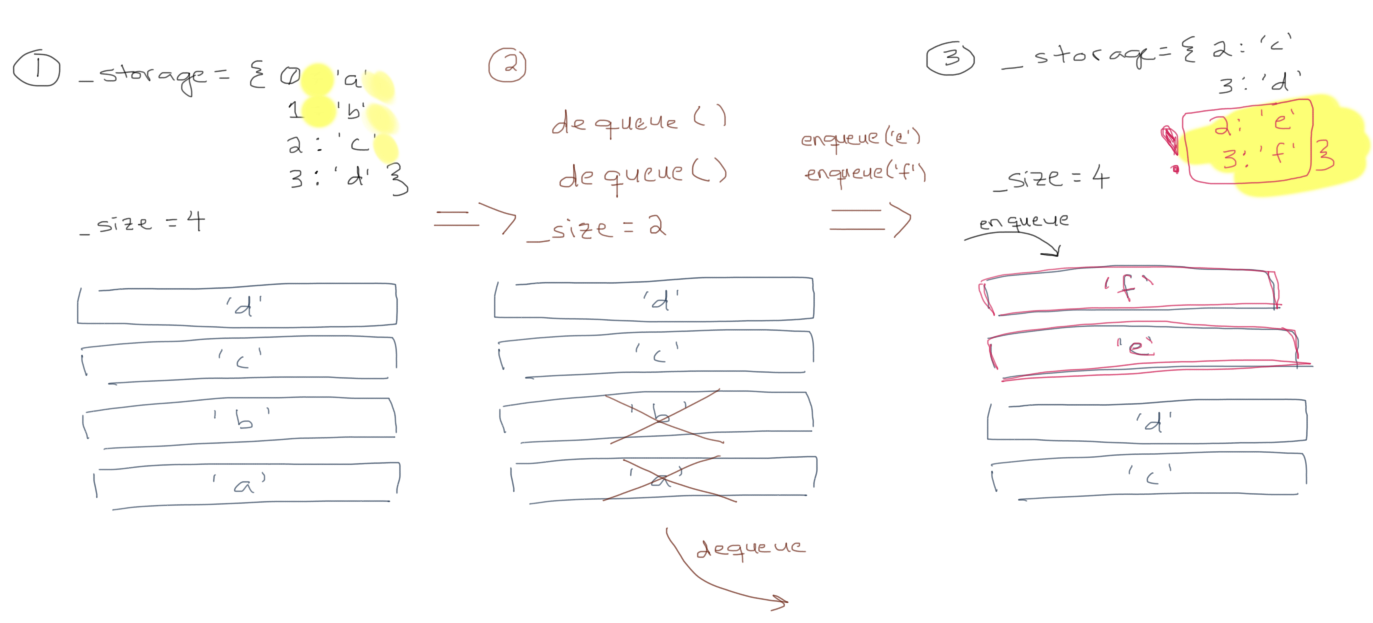 1 _storage = { 0 'a'
1 'b'
2 : 'c'
3 : 'd' }
_size = 4
'd'
'c'
'b'
'a'
=>
2
dequeue ( )
dequeue ( )
_size = 2
'd'
'c'
'b'
'a'
dequeue
enqueue('e')
enqueue('f')
=>
3 _storage = { 2 : 'c'
3 : 'd'
! 2 : 'e'
3 : 'f' }
_size = 4
enqueue
'f'
'e'
'd'
'c'